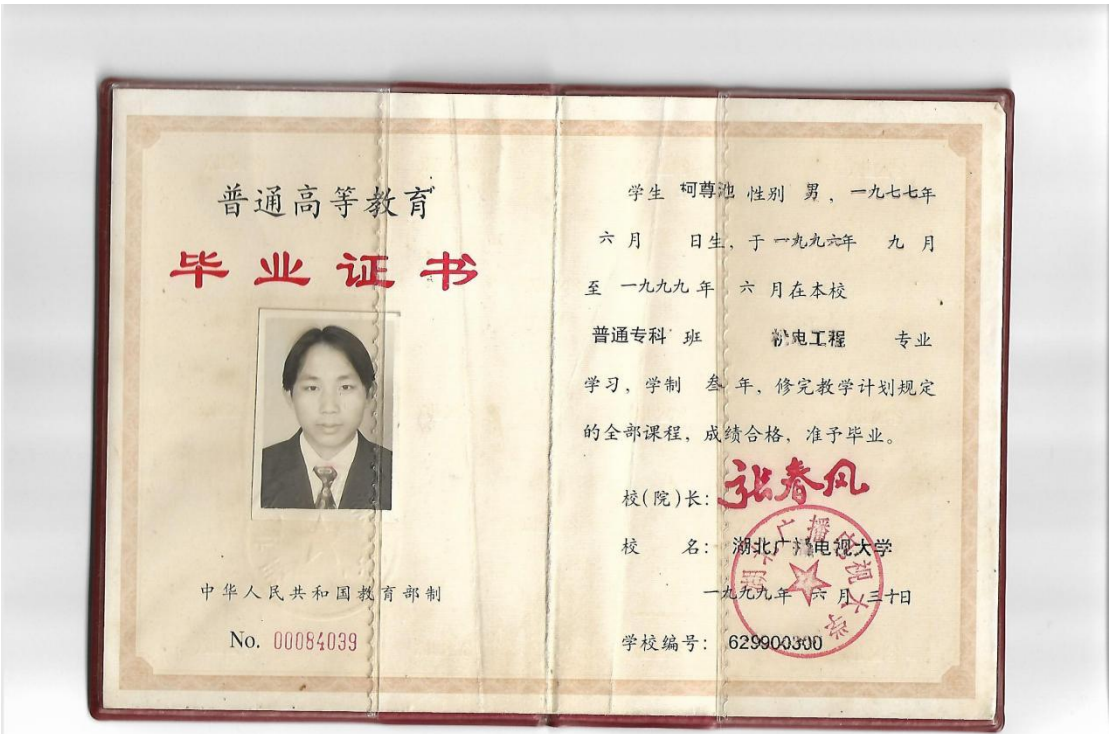 普通高等教育
毕业证书
中华人民共和国教育部制
No. 00084039
学生 柯尊池 性别 男，一九七七年
六月 日生，于一九九六年 九月
至 一九九九年 六月在本校
普通专科 班 机电工程 专业
学习，学制 叁年，修完教学计划规定
的全部课程，成绩合格，准予毕业。
校(院)长：张春风
校 名：湖北广播电视大学
一九九九年 六月 三十日
学校编号：629900300
湖北广播电视大学